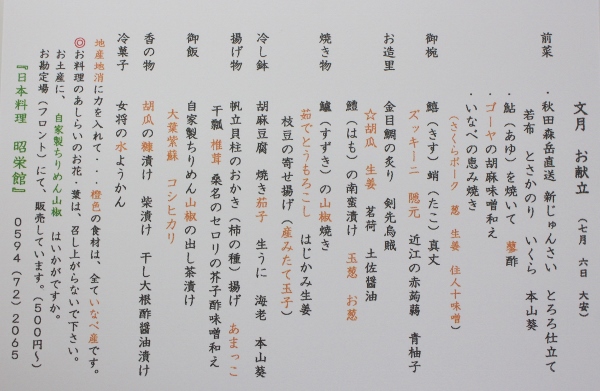 文月　お献立　（七月　六日　大安）
前菜　・秋田森岳直送　新じゅんさい　とろろ仕立て
若布　とさかのり　いくら　本山葵
・鮎（あゆ）を焼いて　蓼酢
・ゴーヤの胡麻味噌和え
・いなべの恵み焼き
（さくらポーク　葱　生姜　佳人十味噌）
御椀　鱚（きす）蛸（たこ）真丈
ズッキーニ　隠元　近江の赤蒟蒻　青柚子
お造里　金目鯛の炙り　剣先烏賊
☆胡瓜　生姜　茗荷　土佐醤油
鱧（はも）の南蛮漬け　玉葱　お葱
焼き物　鱸（すずき）の山椒焼き
茹でとうもろこし　はじかみ生姜
枝豆の寄せ揚げ（産みたて玉子）
冷し鉢　胡麻豆腐　焼き茄子　生うに　海老　本山葵
揚げ物　帆立貝柱のおかき（柿の種）揚げ　あまっこ
干瓢　椎茸　桑名のセロリの芥子酢味噌和え
御飯　自家製ちりめん山椒の出し茶漬け
大葉紫蘇　コシヒカリ
香の物　胡瓜の糠漬け　柴漬け　干し大根酢醤油漬け
冷菓子　女将の水ようかん
地産地消に力を入れて・・・橙色の食材は、全ていなべ産です。
◎お料理のあしらいのお花・葉は、召し上がらないで下さい。
お土産に、　自家製ちりめん山椒　はいかがですか。
お勘定場（フロント）にて、販売しています。（５００円～）
『日本料理　昭栄館』　０５９４（７２）２０６５